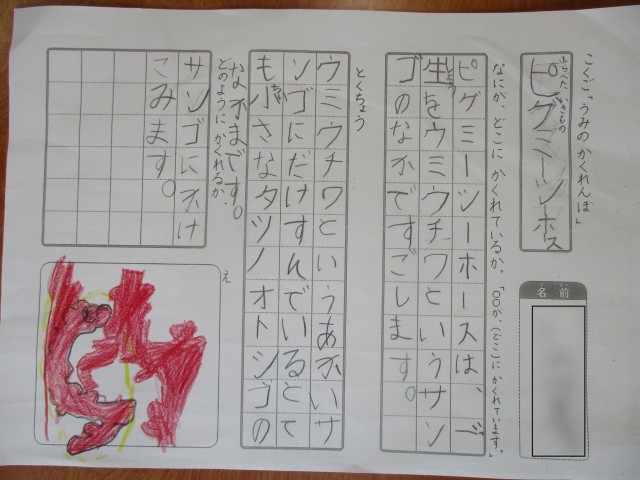 こくご「うみのかくれんぼ」
しらべた いきもの
ピグミーシーホース
名前
なまえ
なにが、どこに かくれているか。「○○が、(どこに かくれています。」
ピグミーシーホースは、一
生をウミウチワというサン
ゴのなかですごします。
とくちょう
ウミウチワというあかいサ
ンゴにだけすんでいるとて
も小さなタツノオトシゴの
なかまです。
どのように かくれるか。
サンゴにとけ
こみます。
え